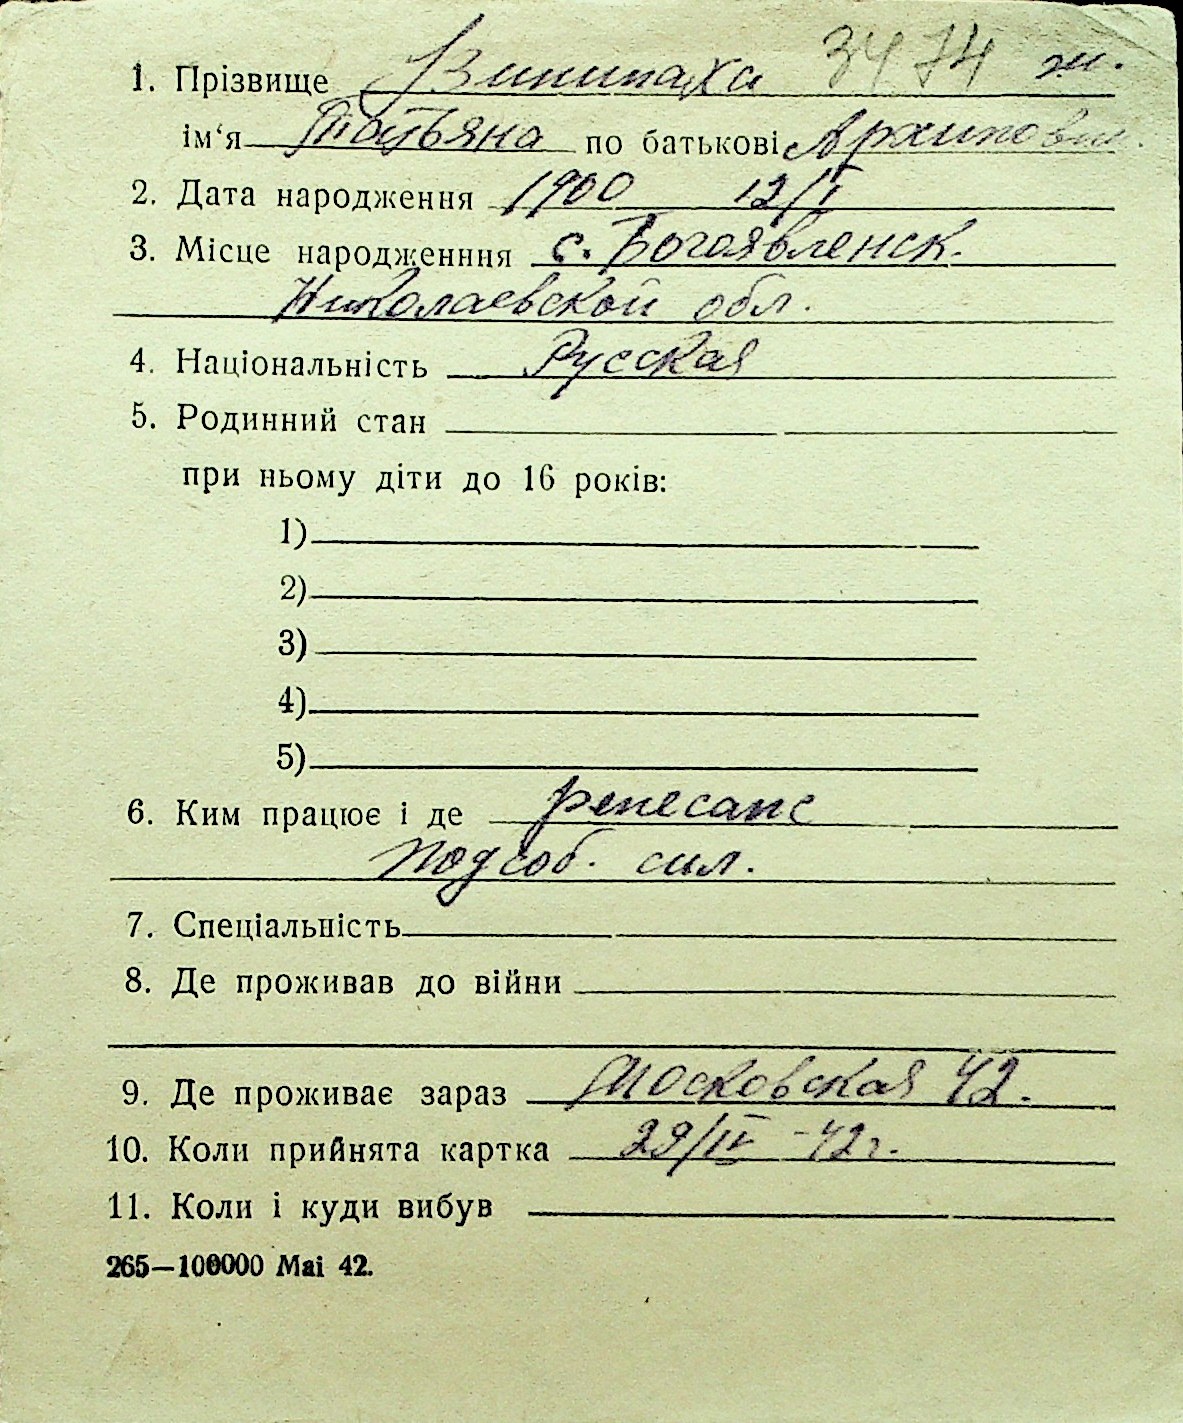 1. Прізвище Винипаха 3474 ж.
ім‘я Татьяна по батькові Архиповна
2. Дата народження 1900 12/I
3. Місце народженння с. Богоявленск.
Николаевской обл.
4. Національність Русская
5. Родинний стан
при ньому діти до 16 років:
1)
2)
3)
4)
5)
6. Ким працює і де ренесанс
подсоб. сил.
7. Спеціальність
8. Де проживав до війни
9. Де проживає зараз Московская 42.
10. Коли прийнята картка 29/IV-42г.
11. Коли і куди вибув
265—100000 Mai 42.